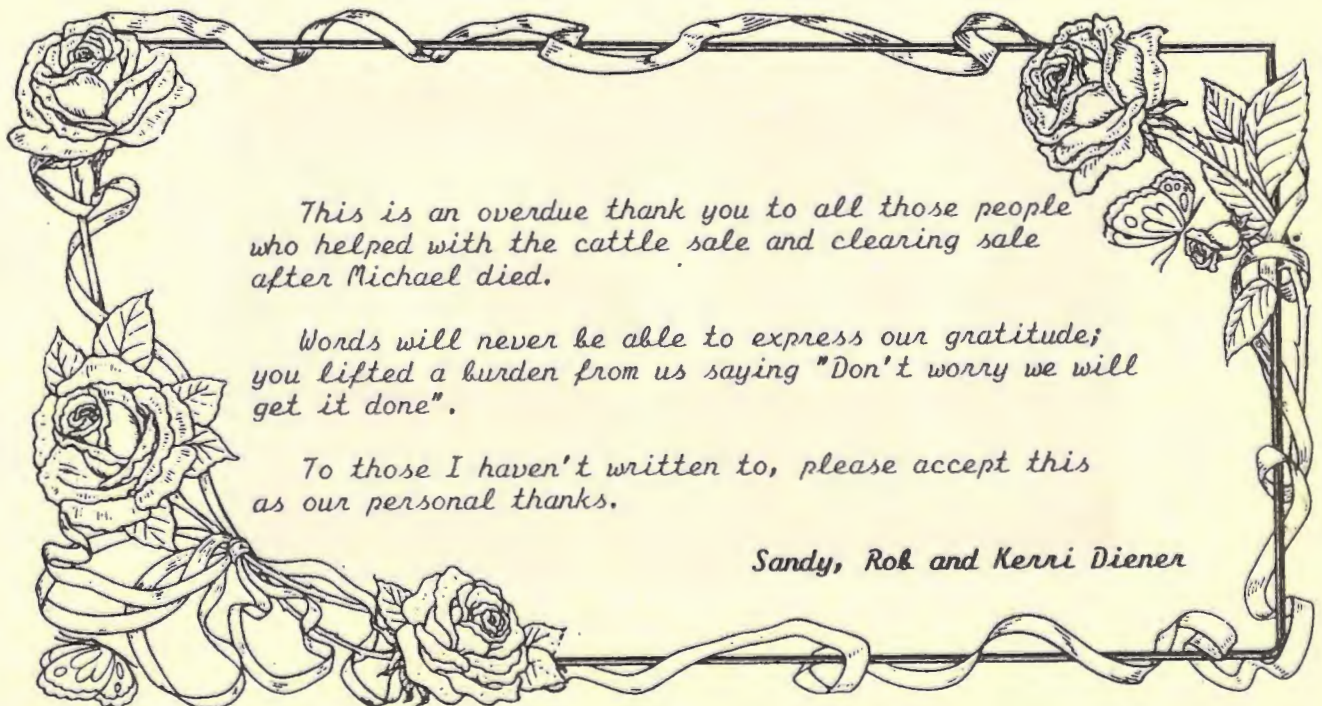 This is an overdue thank you to all those people
who helped with the cattle sale and clearing sale
after Michael died.
Words will never be able to express our gratitude;
you lifted a burden from us saying "Don't worry we will
get it done".
To those I haven't written to, please accept this
as our personal thanks.
Sandy, Rob and Kerri Diener